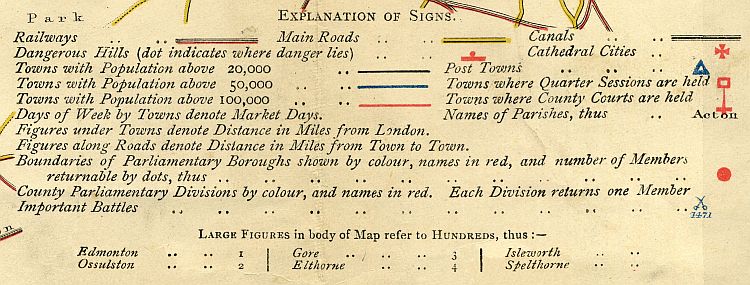 Park
EXPLANATION OF SIGNS.
Railways .. .. Main Roads .. Canals .. ..
Dangerous Hills (dot indicates where danger lies) .. Cathedral Cities ..
Towns with Population above 20,000 .. .. Post Towns .. .. .. ..
Towns with Population above 50,000 .. .. Towns where Quarter Sessions are held
Towns with Population above 100,000 .. .. Towns where County Courts are held
Days of Week by Towns denote Market Days. Names of Parishes, thus .. Acton
Figures under Towns denote Distance in Miles from London.
Figures along Roads denote Distance in Miles from Town to Town.
Boundaries of Parliamentary Boroughs shown by colour, names in red, and number of Members
returnable by dots, thus .. .. .. .. .. .. .. .. .. .. .. ..
County Parliamentary Divisions by colour, and names in red. Each Division returns one Member
Important Battles .. .. .. .. .. .. .. .. .. .. .. .. .. 1471
LARGE FIGURES in body of Map refer to HUNDREDS, thus :—
Edmonton .. .. 1 Gore .. .. .. 3 Isleworth .. ..
Ossulston .. .. 2 Elthorne .. .. 4 Spelthorne .. ..